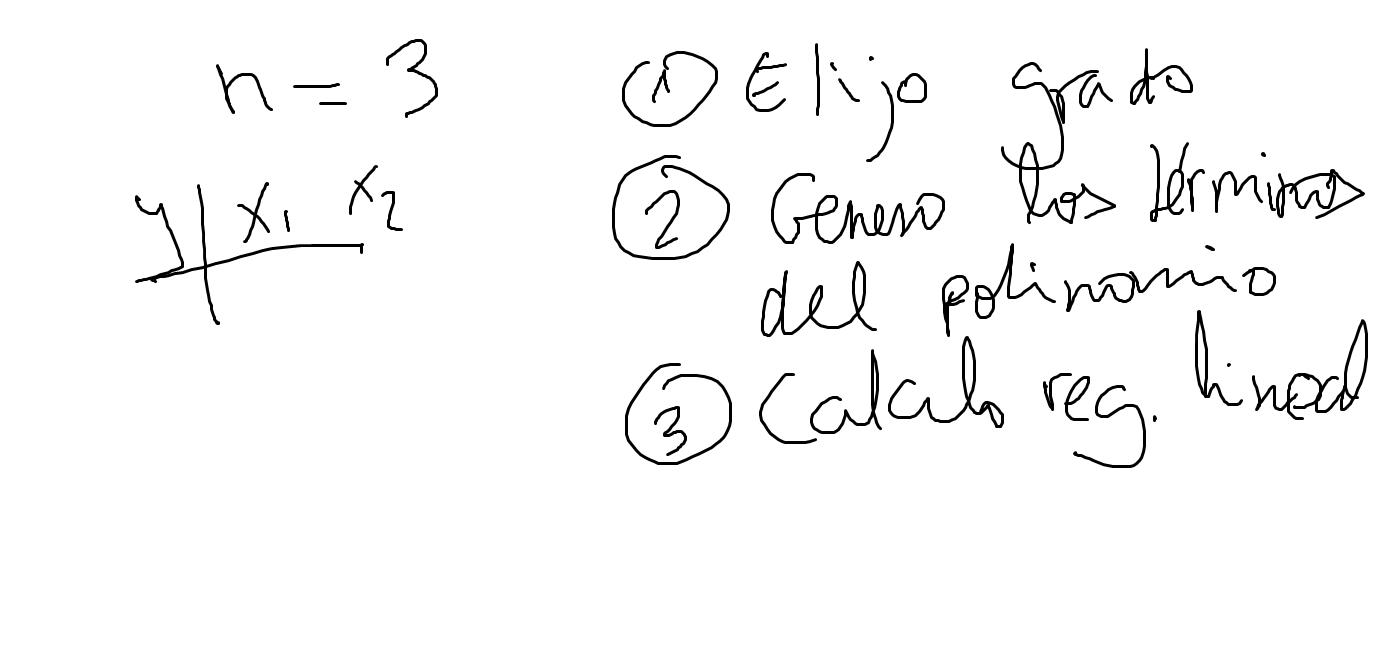 n = 3
y | x₁ x₂
① Elijo grado
② Genero los términos
del polinomio
③ Calculo reg. lineal